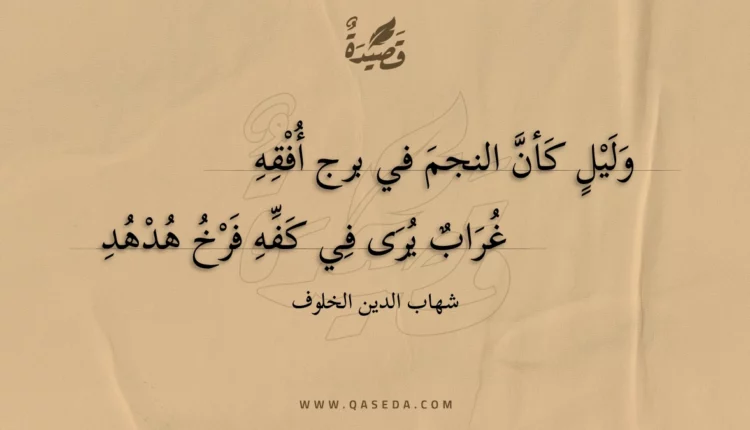 قَصِيْدَةٌ
وَلَيْلٍ كَأنَّ النجمَ في برج أُفْقِهِ
غُرَابٌ يُرَى فِي كَفِّهِ فَرْخُ هُدْهُدِ
شهاب الدين الخلوف
WWW.QASEDA.COM